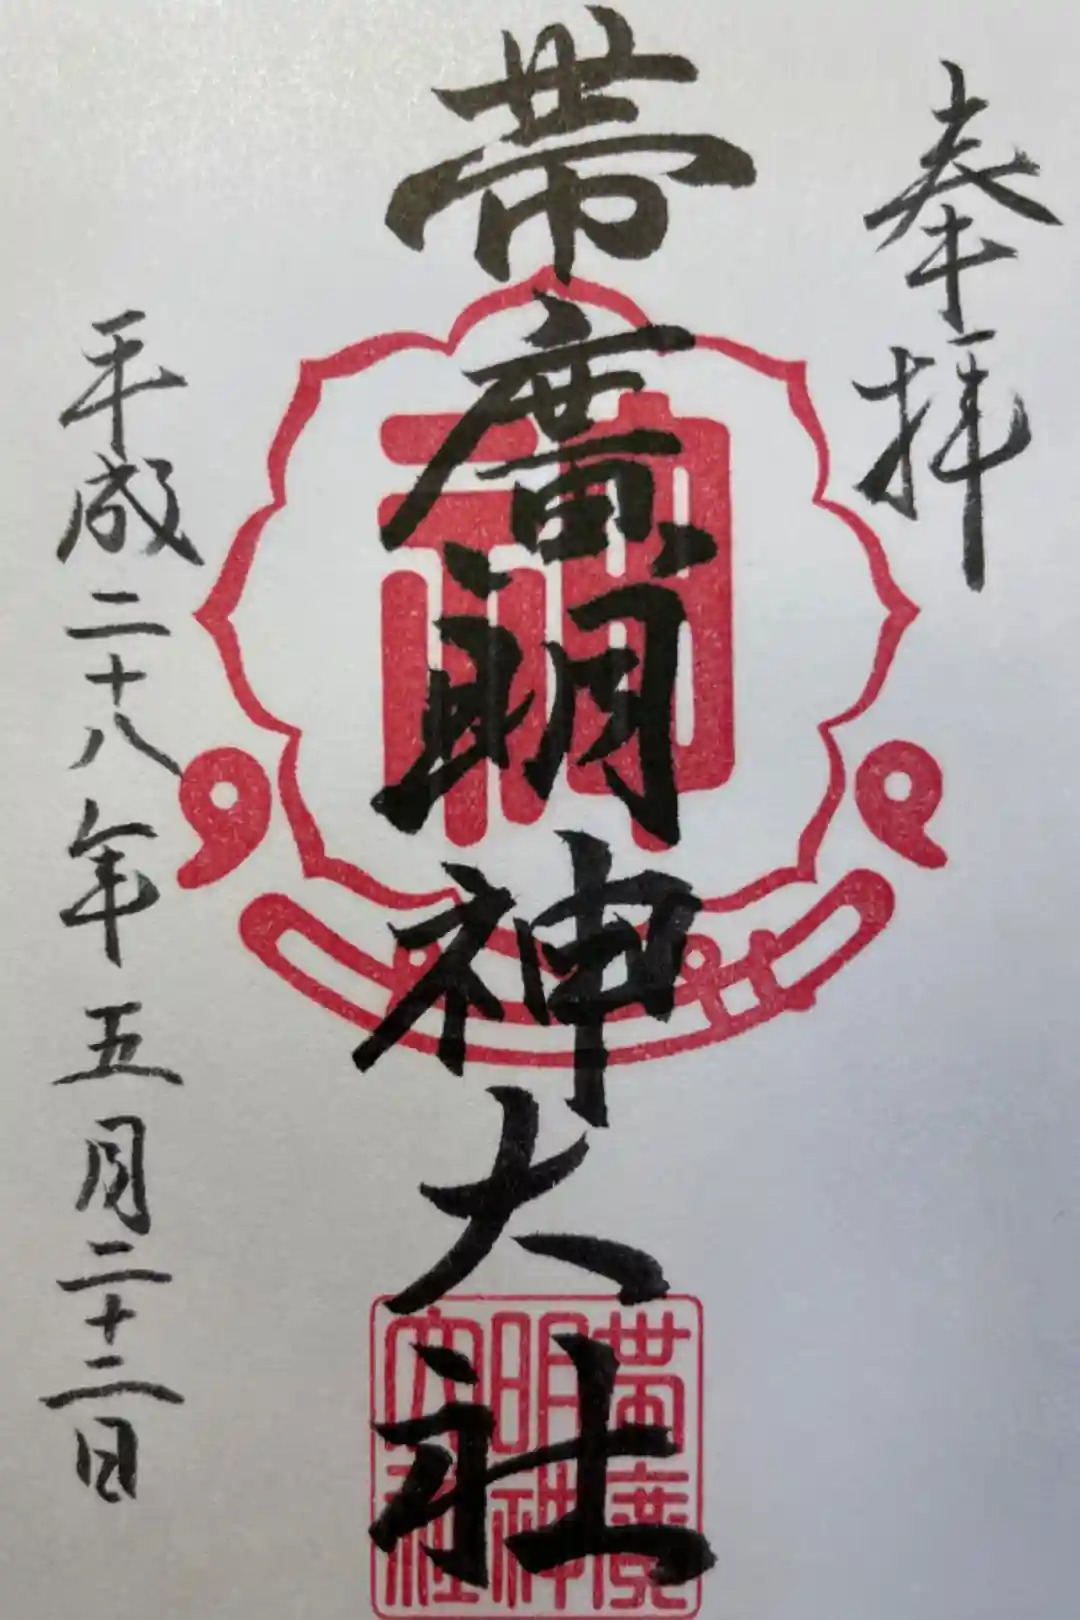 奉拝
帯廣眀神大社
平成二十八年五月二十二日
神
帯廣
明神
大社